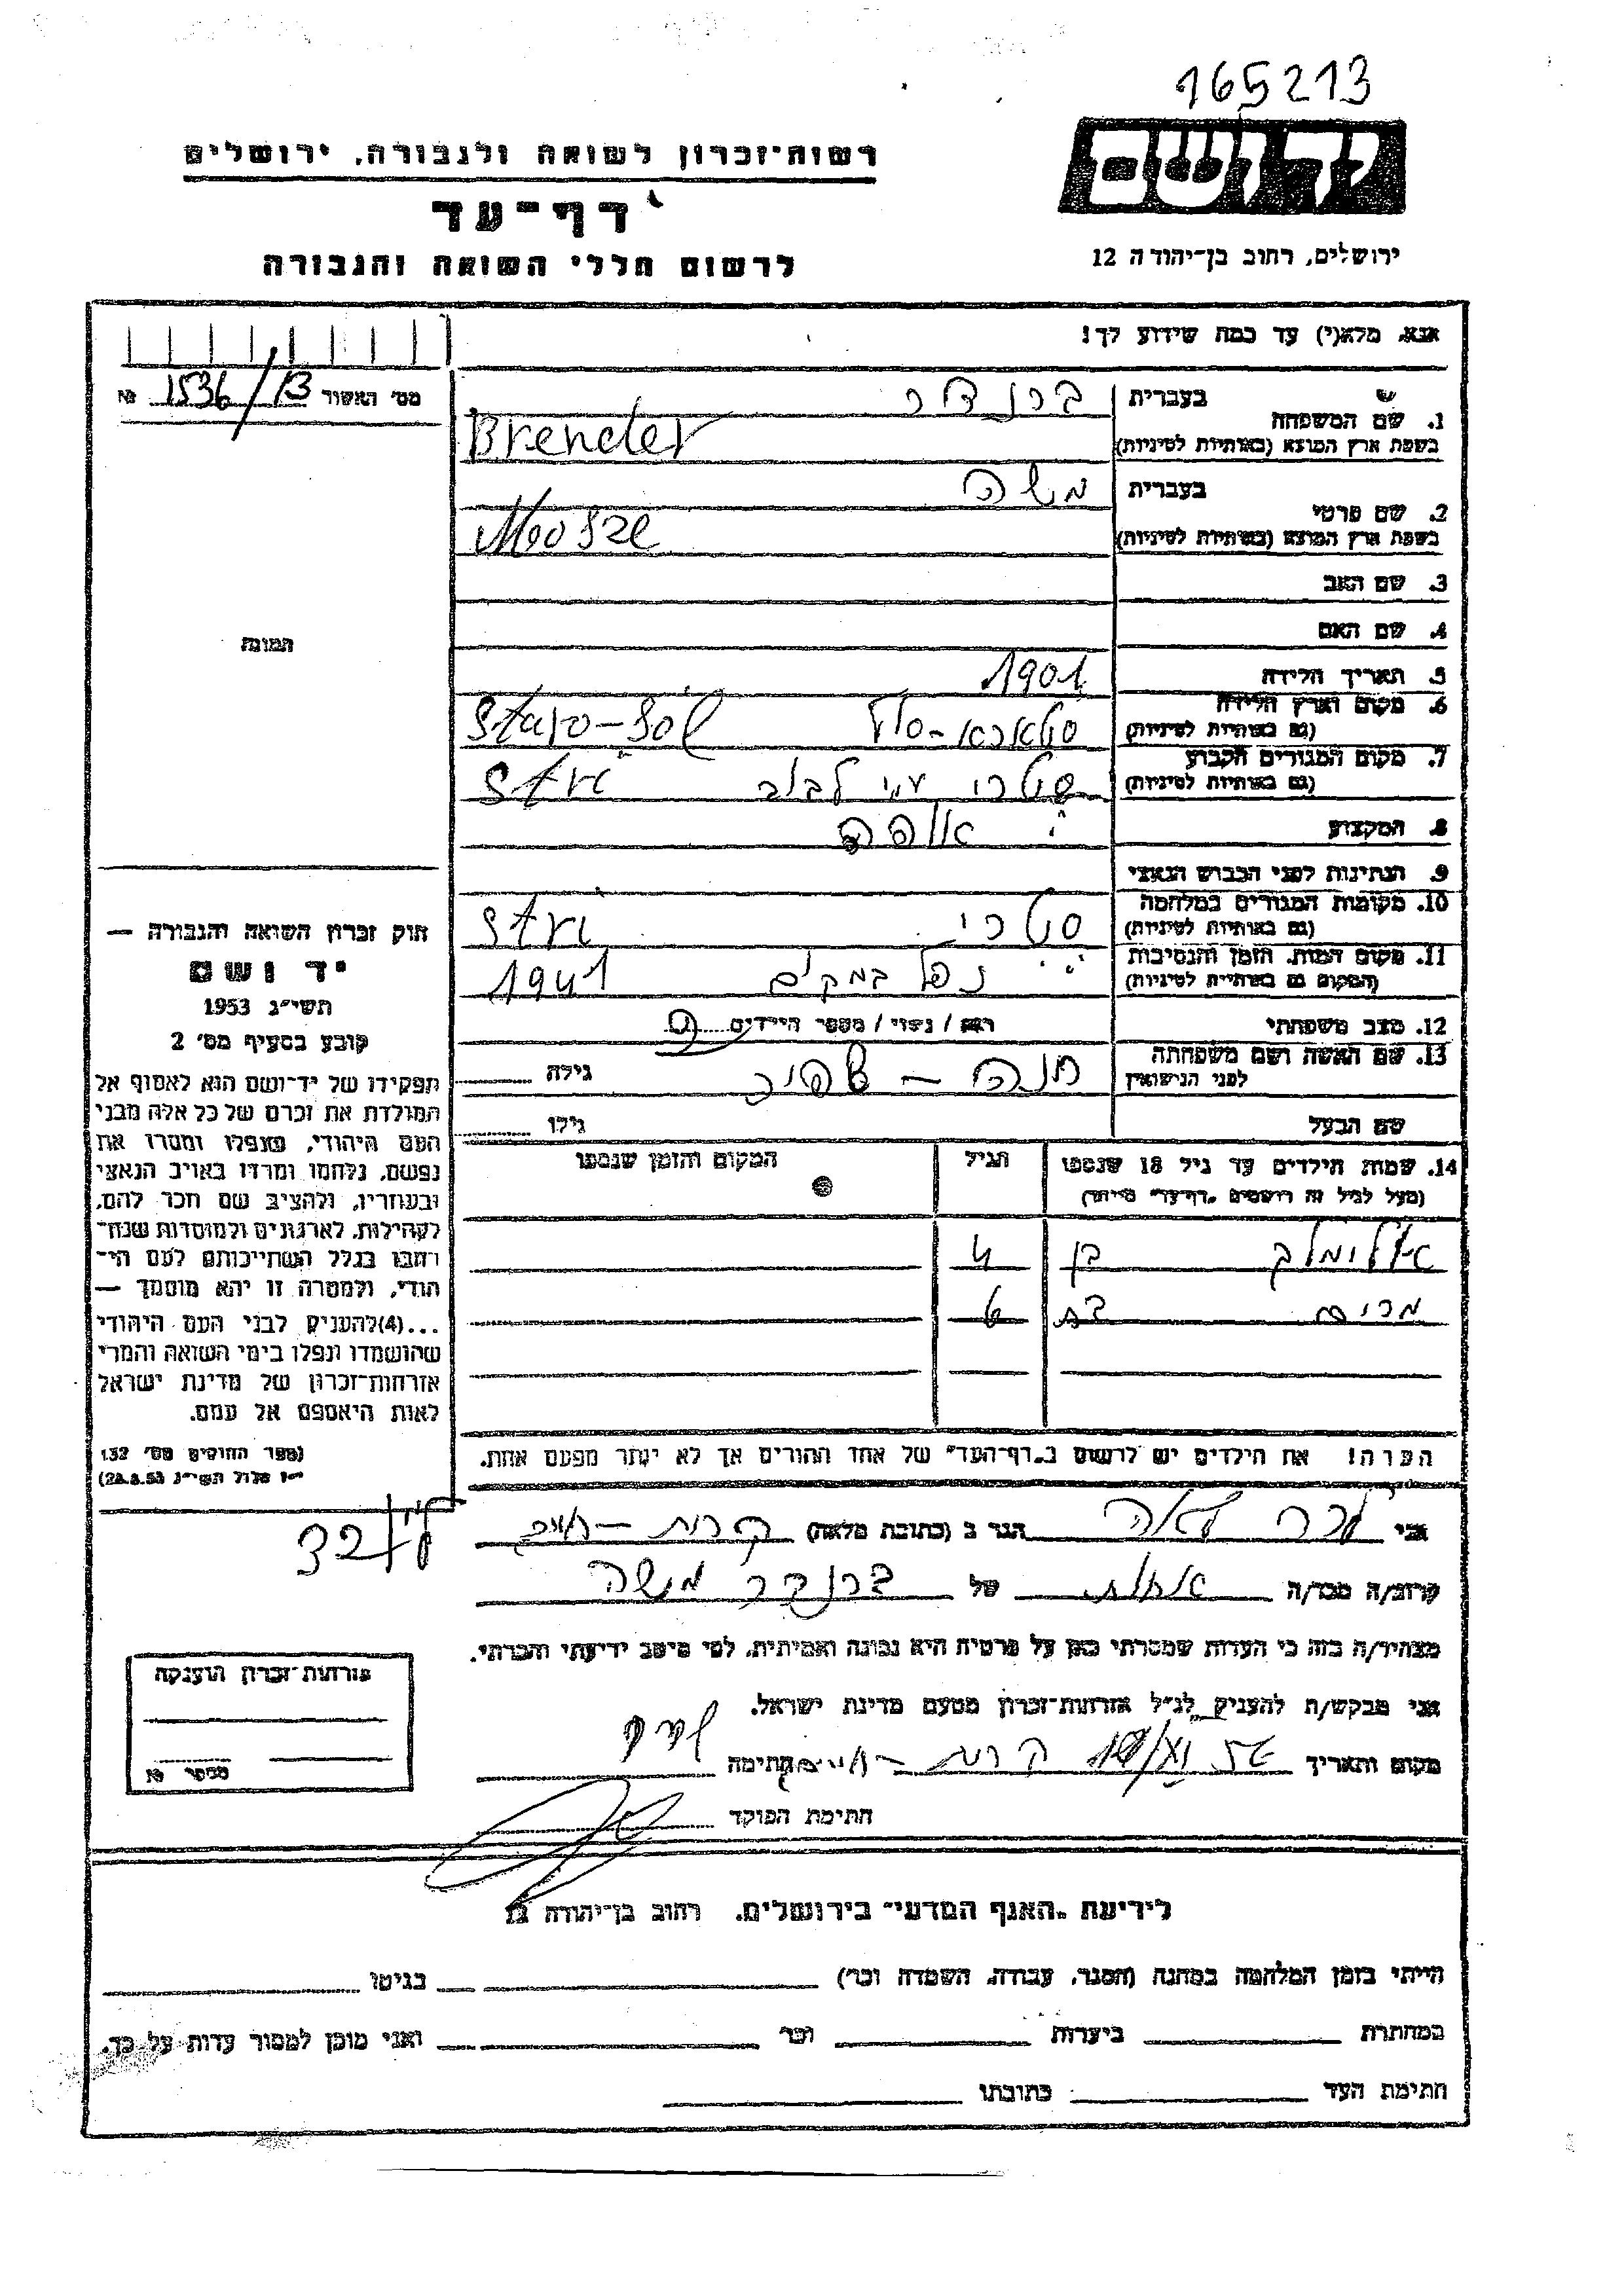 165213
רשות־זכרון לשואה ולגבורה, ירושלים
ידושם
דף־עד
ירושלים, רחוב בן־יהודה 12
לרשום חללי השואה והגבורה
אנא, מלא(י) עד כמה שידוע לך!
מס' האשור 1536/13 №
בעברית ברנדר
1. שם המשפחה
בשפת ארץ המוצא (באותיות לטיניות) Brender
בעברית משה
2. שם פרטי
בשפת ארץ המוצא (באותיות לטיניות) Moosze
3. שם האב
4. שם האם
התמונה
5. תאריך הלידה 1901
6. מקום וארץ הלידה סטארא-סול Staro-Sól
(גם באותיות לטיניות)
7. מקום המגורים הקבוע סטרי ע"י לבוב Stri
(גם באותיות לטיניות)
8. המקצוע אופה
9. הנתינות לפני הכבוש הנאצי
10. מקומות המגורים במלחמה סטרי Stri
(גם באותיות לטיניות)
11. מקום המות, הזמן והנסיבות נפל במקום 1941
(המקום גם באותיות לטיניות)
12. מצב משפחתי רווק / נשוי / מספר הילדים
13. שם האשה ושם משפחתה חנה – שפיר גילה
לפני הנישואין
שם הבעל גילו
14. שמות הילדים עד גיל 18 שנספו הגיל המקום והזמן שנספו
(מעל לגיל זה רושמים "דף־עד" מיוחד)
אלימלך בן 4
מרים בת 6
הערה! את הילדים יש לרשום ב"דף־העד" של אחד ההורים אך לא יותר מפעם אחת.
חוק זכרון השואה והגבורה —
יד ושם
תשי״ג 1953
קובע בסעיף מס' 2
תפקידו של יד־ושם הוא לאסוף אל
המולדת את זכרם של כל אלה מבני
העם היהודי, שנפלו ומסרו את
נפשם, נלחמו ומרדו באויב הנאצי
ובעוזריו, ולהציב שם וזכר להם,
לקהילות, לארגונים ולמוסדות שנח־
רבו בגלל השתייכותם לעם הי־
הודי, ולמטרה זו יהא מוסמך —
...(4) להעניק לבני העם היהודי
שהושמדו ונפלו בימי השואה והמרי
אזרחות־זכרון של מדינת ישראל
לאות היאספם אל עמם.
(ספר החוקים מס' 132
י״ז אלול תשי״ג 28.8.53)
32/
אני לאה הגר ב (כתובת מלאה) קרית –
קרוב/ה מכר/ה אחות של ברנדר משה
מצהיר/ה בזה כי העדות שמסרתי כאן על פרטיה היא נכונה ואמיתית, לפי מיטב ידיעתי והכרתי.
אני מבקש/ת להעניק לנ״ל אזרחות־זכרון מטעם מדינת ישראל.
מקום ותאריך קרית – חתימה
חתימת הפוקד
אזרחות־זכרון הוענקה
מספר №
לידיעת "האגף המדעי" בירושלים, רחוב בן־יהודה 12
הייתי בזמן המלחמה במחנה (הסגר, עבודה, השמדה וכו') בגיטו
במחתרת ביערות וכו' ואני מוכן למסור עדות על כך.
חתימת העד כתובתו